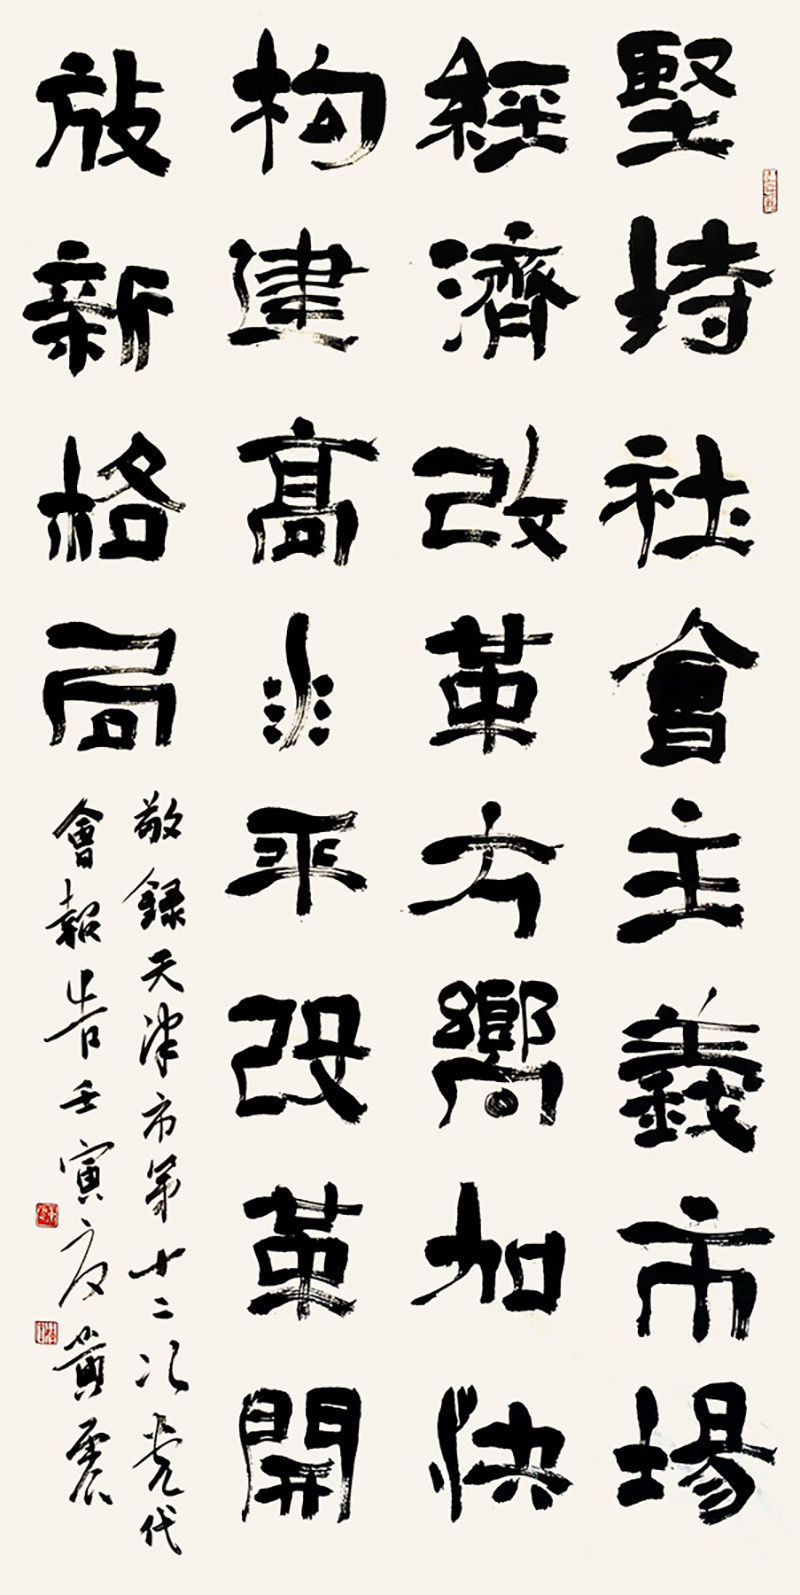 堅持社會主義市場
經濟改革方嚮加快
构建高水平改革開
放新格局
敬録天津市第十二次党代
會報告壬寅夏黄震